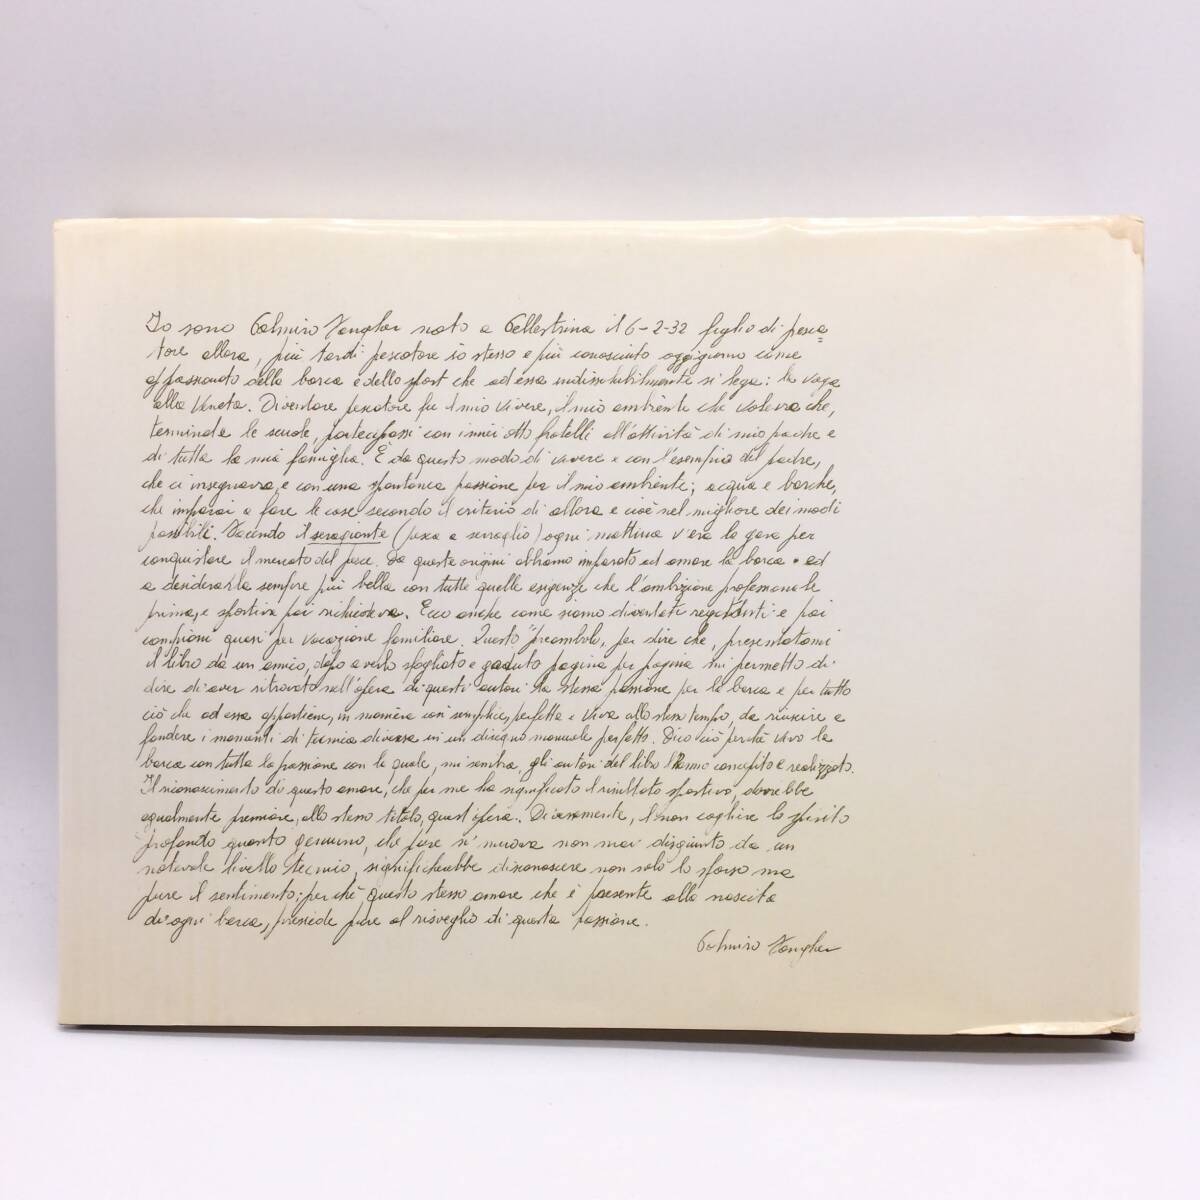 Io sono Palmiro Fongher nato a Pellestrina il 6-2-32 figlio di pesca=
tore allora, più tardi pescatore io stesso e più conosciuto oggigiorno come
appassionato della barca e dello sport che ad essa indissolubilmente si lega: la voga
alla Veneta. Diventare pescatore fu il mio vivere, il mio ambiente che voleva che,
terminate le scuole, partecipassi con i miei otto fratelli all'attività di mio padre e
di tutta la mia famiglia. È da questo modo di vivere e con l'esempio del padre,
che ci insegnava, e con una spontanea passione per il mio ambiente; acqua e barche,
che imparai a fare le cose secondo il criterio di allora e cioè nel migliore dei modi
possibili. Facendo il seragiante (pesca a serraglio) ogni mattina v'era la gara per
conquistare il mercato del pesce. Da queste origini abbiamo imparato ad amare la barca ed
a desiderarla sempre più bella con tutte quelle esigenze che l'ambizione professionale
prima, e sportiva poi richiedeva. Ecco anche come siamo diventati regatanti e poi
campioni quasi per vocazione familiare. Questo "preambolo, per dire che, presentatomi
il libro da un amico, dopo averlo sfogliato e goduto pagina per pagina mi permetto di
dire di aver ritrovato nell'opera di questi autori la stessa passione per la barca e per tutto
ciò che ad essa appartiene, in maniera così semplice, perfetta e viva allo stesso tempo, da riuscire a
fondere i momenti di tecnica diversa in un disegno manuale perfetto. Dico ciò perchè vivo la
barca con tutta la passione con la quale, mi sembra, gli autori del libro l'hanno concepito e realizzato.
Il riconoscimento di questo amore, che per me ha significato il risultato sportivo, dovrebbe
egualmente premiare, allo stesso titolo, quest'opera. Diversamente, il non cogliere lo spirito
profondo quanto genuino, che pure si muove non mai disgiunto da un
notevole livello tecnico, significherebbe disconoscere non solo lo sforzo ma
pure il sentimento; perchè questo stesso amore che è presente alla nascita
di ogni barca, presiede pure al risveglio di questa passione.
Palmiro Fongher